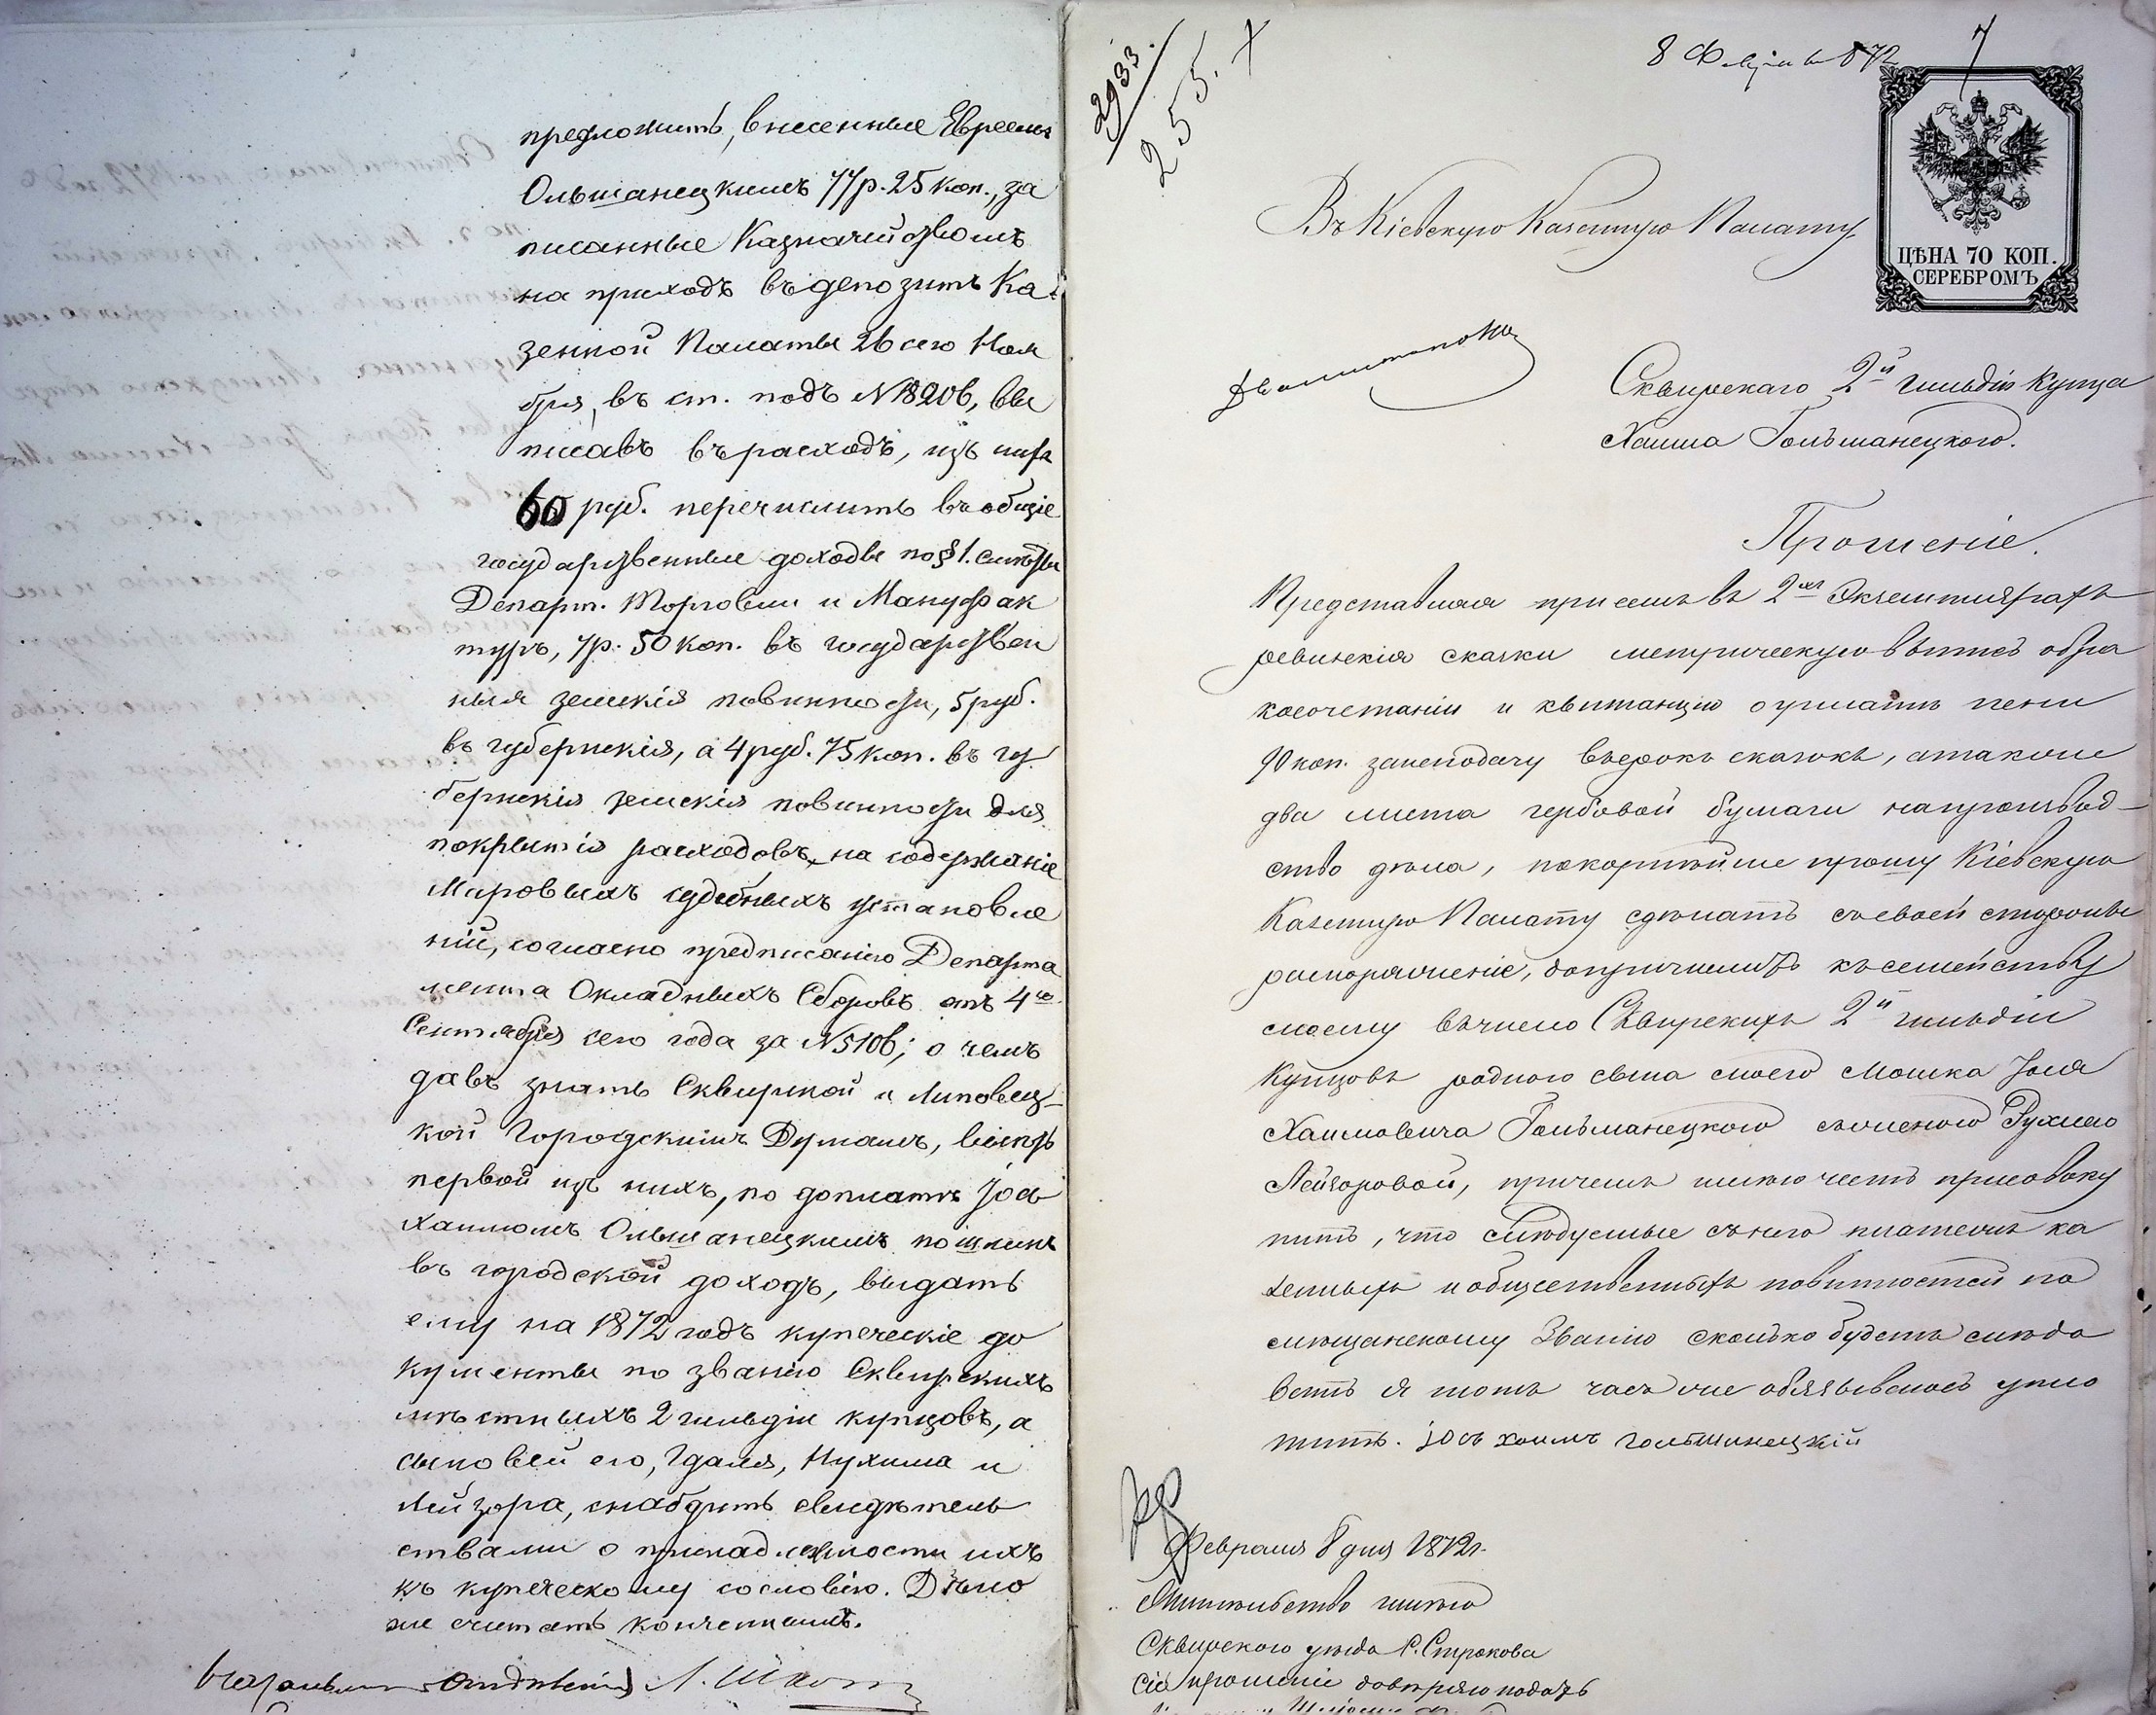 предложить, внесенные Евреемъ
Ольшанецкимъ 77 р. 25 коп., за
писанные Казначействомъ
на приходъ въ депозитъ Ка
зенной Палаты 26 сего Ноя
бря, въ ст. подъ N 18206, вы
писавъ въ расходъ, изъ нихъ
60 руб. перечислить въ общіе
государственные доходы по § 1. смѣты
Департ. Торговли и Мануфак
туръ, 7 р. 50 коп. въ государствен
ныя земскія повинности, 5 руб.
въ губернскія, а 4 руб. 75 коп. въ гу
бернскія земскія повинности для
покрытія расходовъ на содержаніе
Мировыхъ судебныхъ установле
ній, согласно предписанію Департа
мента Окладныхъ Сборовъ отъ 4го
Сентября сего года за N 5106; о чемъ
давъ знать Сквирской и Липовец-
кой Городскимъ Думамъ,
первой изъ нихъ, по доплатѣ Іось
Хаимомъ Ольшанецкимъ пошлинъ
въ городской доходъ, выдать
ему на 1872 годъ купеческіе до
кументы по званію Сквирскихъ
мѣстныхъ 2 гильдіи купцовъ, а
сыновей его, Гдаля, Нухима и
Лейзора, снабдить свидѣтель
ствами о принадлежности ихъ
къ купеческому сословію. Дѣло
же считать конченнымъ.
2933.
255.
8 872
7
Въ Кіевскую Казенную Палату
ЦѢНА 70 КОП.
СЕРЕБРОМЪ
Сквирскаго 2й гильдіи Купца
Хаима Гольшанецкого.
Прошеніе.
Представляя при семъ въ 2хъ Экземплярахъ
ревизскія сказки метрическую выпись о бра
косочетаніи и квитанцію о уплатѣ пени
90 коп. за неподачу въ срокъ сказокъ, а также
два листа гербовой бумаги на производ-
ство дѣла, покорнѣйше прошу Кіевскую
Казенную Палату сдѣлать съ своей стороны
распоряженіе, о причислить къ семейству
моему въ число Сквирскихъ 2й гильдіи
Купцовъ родного сына моего Мошка Іоля
Хаимовича Гольшанецкого съ женою Рухлею
Лейзоровой, причемъ имѣю честь присовоку
пить, что слѣдуемые съ него платежи ка
зенныхъ и общественныхъ повинностей по
мѣщанскому Званію сколько будетъ слѣдо
вать я тотъ часъ же обязываюсь упло
тить. Іось хаимъ голшанецкій
Февраля 8 дня 1872 г.
Жительство имѣю
Сквирского уѣзда С. Строкова
Сіе прошеніе довѣряю подать